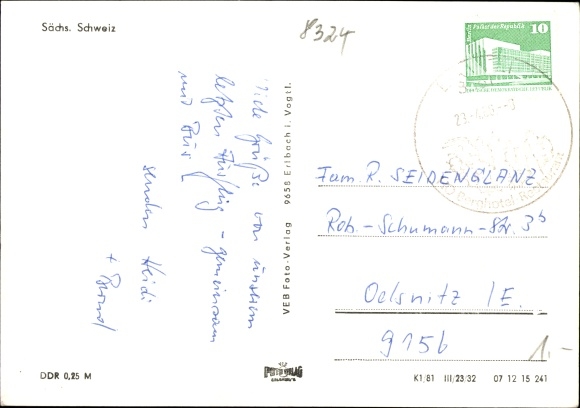 Sächs. Schweiz
8324
Berlin Palast der Republik 10
DEUTSCHE DEMOKRATISCHE REPUBLIK
Viele Grüße von unserem
letzten Ausflug - gemeinsam
mit Euch
senden Heidi
+ Bernd
VEB Foto-Verlag 9658 Erlbach i. Vogtl.
Fam. R. SEIDENGLANZ
Rob.-Schumann-Str. 3b
Oelsnitz /E.
9156
1.-
DDR 0,25 M
K1/81 III/23/32 07 12 15 241